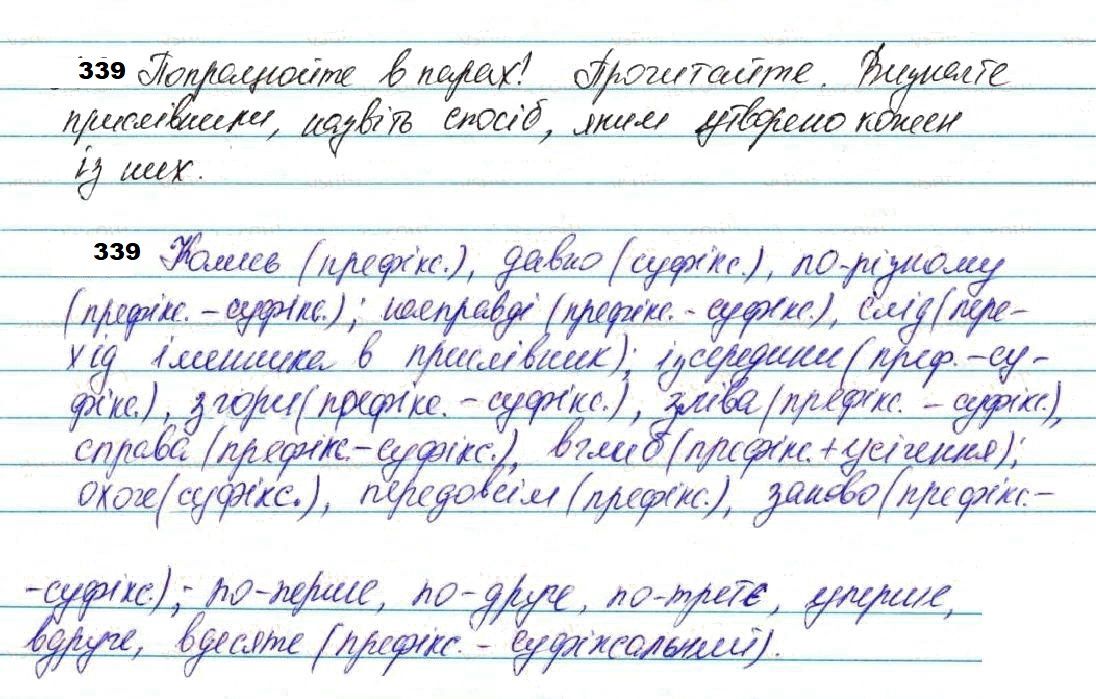 339 Попрацюйте в парах! Прочитайте. Визначте
прислівники, назвіть спосіб, яким утворено кожен
із них.
339 Колись (префікс.), давно (суфікс.), по-різному
(префікс. - суфікс.); насправді (префікс. - суфікс.), слід (пере-
хід іменника в прислівник); ізсередини (преф. - су-
фікс.), згори (префікс. - суфікс.), зліва (префікс. - суфікс.),
справа (префікс. - суфікс.), вглиб (префікс. + усічення);
охоче (суфікс.), передовсім (префікс.), заново (префікс. -
- суфікс.); по-перше, по-друге, по-третє, уперше,
вдруге, вдесяте (префікс. - суфіксальний).